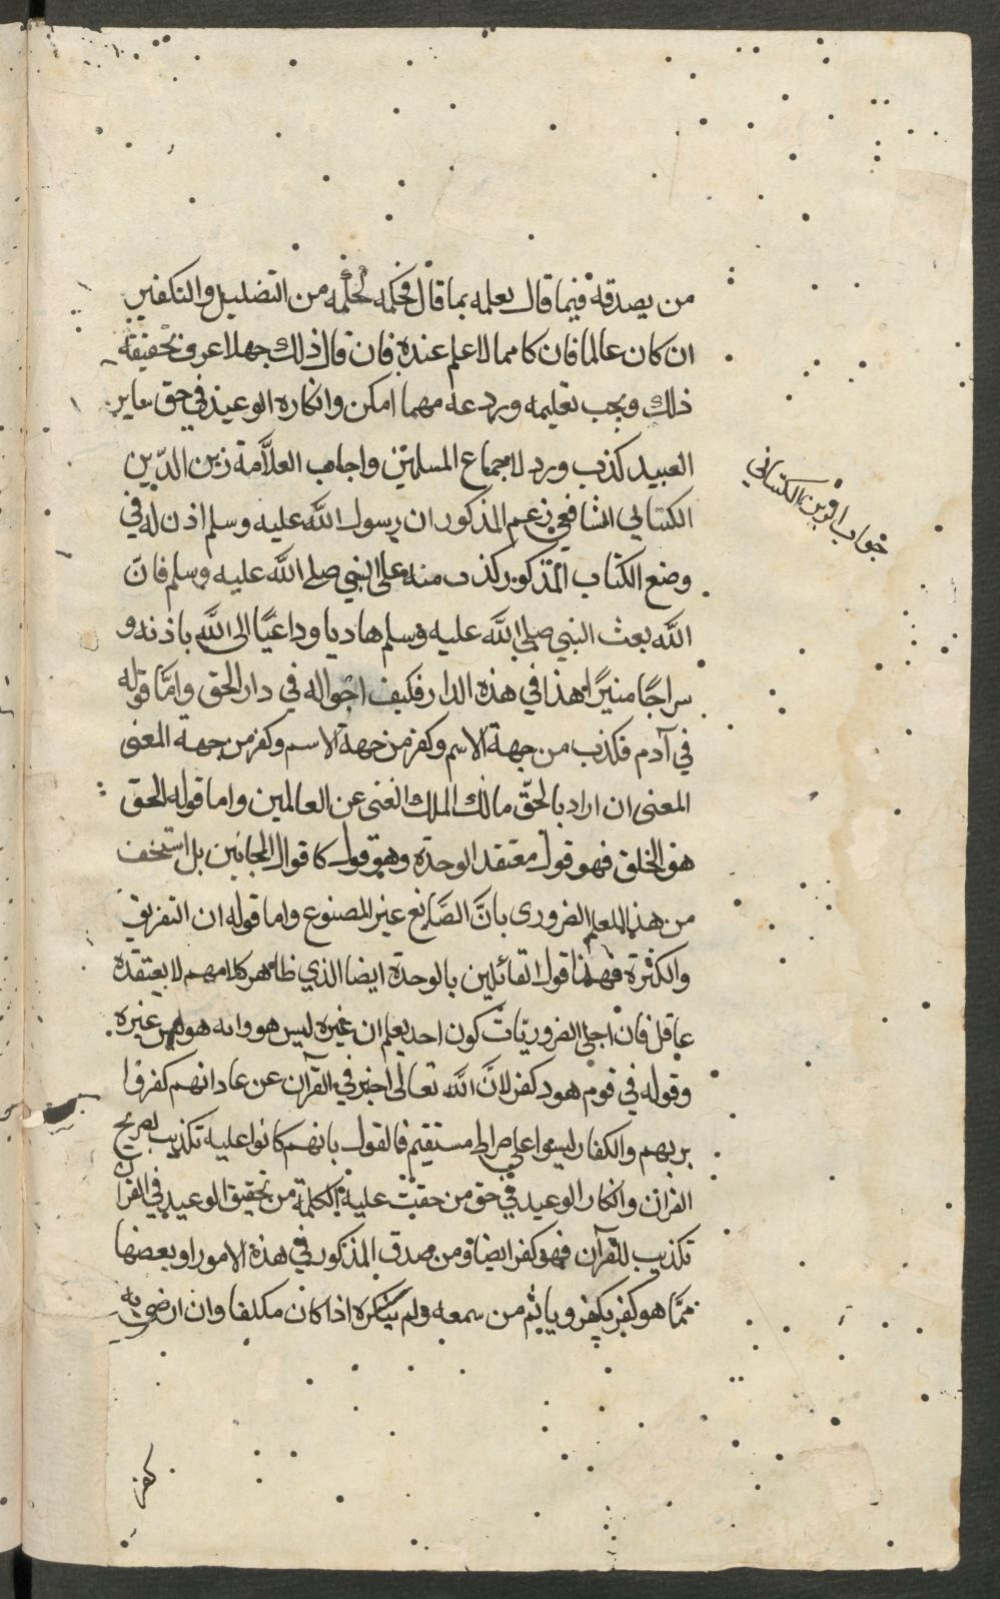 من يصدقه فيما قال بعلمه بما قال فحكمه كحكمه من التضليل والتكفير
ان كان عالما فان كا مما لا علم عنده فان قال ذلك جهلا عرف تحقيقة
ذلك ويجب تعليمه وردعه مهما امكن وانكاره الوعيد في حق ساير
العبيد كذب ورد لاجماع المسلمين واجاب العلامة زين الدين
الكتناني الشافعي زعم المذكور ان رسول الله عليه وسلم اذن له في
وضع الكتاب المذكور كذب منه على النبي صلى الله عليه وسلم فان
الله بعث النبي صلى الله عليه وسلم هاديا وداعيًا الى الله باذنه و
سراجًا منيرًا هذا في هذه الدار فكيف احواله في دار الحق وامّا قوله
في آدم فكذب من جهة الاسم وكفر من جهة الاسم وكفر من جهة المعنى
المعنى ان اراد بالحقّ مالك الملك الغنى عن العالمين واما قوله الحق
هو الخلق فهو قول معتقد الوحدة وهو قول كاقوال المجانين بل استخف
من هذا للعلم الضرورى بانَّ الصَّانع غير المصنوع واما قوله ان التفريق
والكثرة فهذا قول القائلين بالوحدة ايضا الذي ظاهر كلامهم لا يعتقده
عاقل فان اجلى الضروريات كون احد يعلم ان غيره ليس هو وانه هو ليس غيره
وقوله في قوم هود كفر لانَّ الله تعالى اخبر في القرآن عن عاد انهم كفروا
بربهم والكفار ليسوا على صراط مستقيم فالقول بانهم كانوا عليه تكذيب لصريح
القران وانكار الوعيد في حق من حقت عليه الكلمة من تحقيق الوعيد في القران
تكذيب للقرآن فهو كفر ايضا ومن صدق المذكور في هذه الامور او بعضها
ممّا هو كفر يكفر وياثم من سمعه ولم ينكره اذا كان مكلفا وان ارضى به
كفر
جواب الزين الكتناني